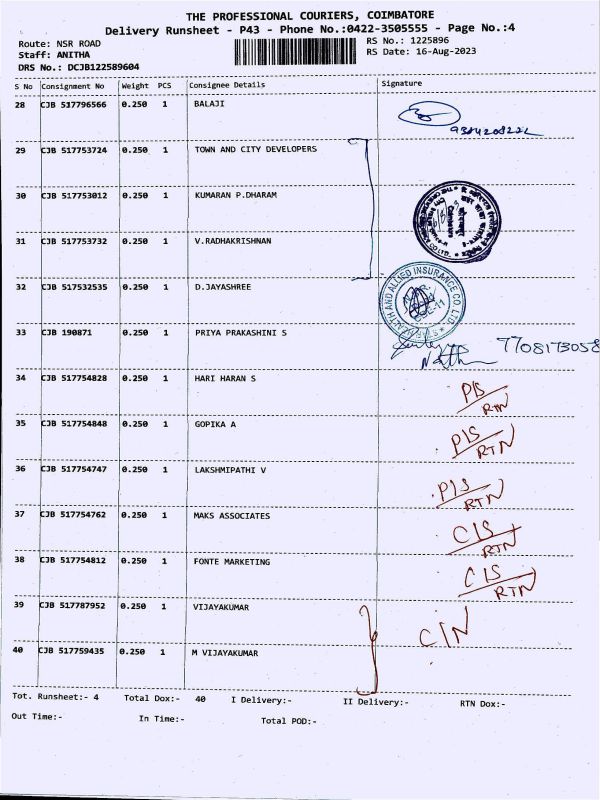 THE PROFESSIONAL COURIERS, COIMBATORE
Delivery Runsheet - P43 - Phone No.:0422-3505555 - Page No.:4
Route: NSR ROAD
RS No.: 1225896
Staff: ANITHA
RS Date: 16-Aug-2023
DRS No.: DCJB122589604
S No Consignment No Weight PCS Consignee Details Signature
28 CJB 517796566 0.250 1 BALAJI
29 CJB 517753724 0.250 1 TOWN AND CITY DEVELOPERS
30 CJB 517753012 0.250 1 KUMARAN P.DHARAM
31 CJB 517753732 0.250 1 V.RADHAKRISHNAN
32 CJB 517532535 0.250 1 D.JAYASHREE
HEALTH AND ALLIED INSURANCE CO. LTD.
33 CJB 190871 0.250 1 PRIYA PRAKASHINI S
7708173058
34 CJB 517754828 0.250 1 HARI HARAN S
P/S
RTN
35 CJB 517754848 0.250 1 GOPIKA A
P/S
RTN
36 CJB 517754747 0.250 1 LAKSHMIPATHI V
P/S
RTN
37 CJB 517754762 0.250 1 MAKS ASSOCIATES
C/S
RTN
38 CJB 517754812 0.250 1 FONTE MARKETING
C/S
RTN
39 CJB 517787952 0.250 1 VIJAYAKUMAR
C/N
40 CJB 517759435 0.250 1 M VIJAYAKUMAR
Tot. Runsheet:- 4 Total Dox:- 40 I Delivery:- II Delivery:- RTN Dox:-
Out Time:- In Time:- Total POD:-